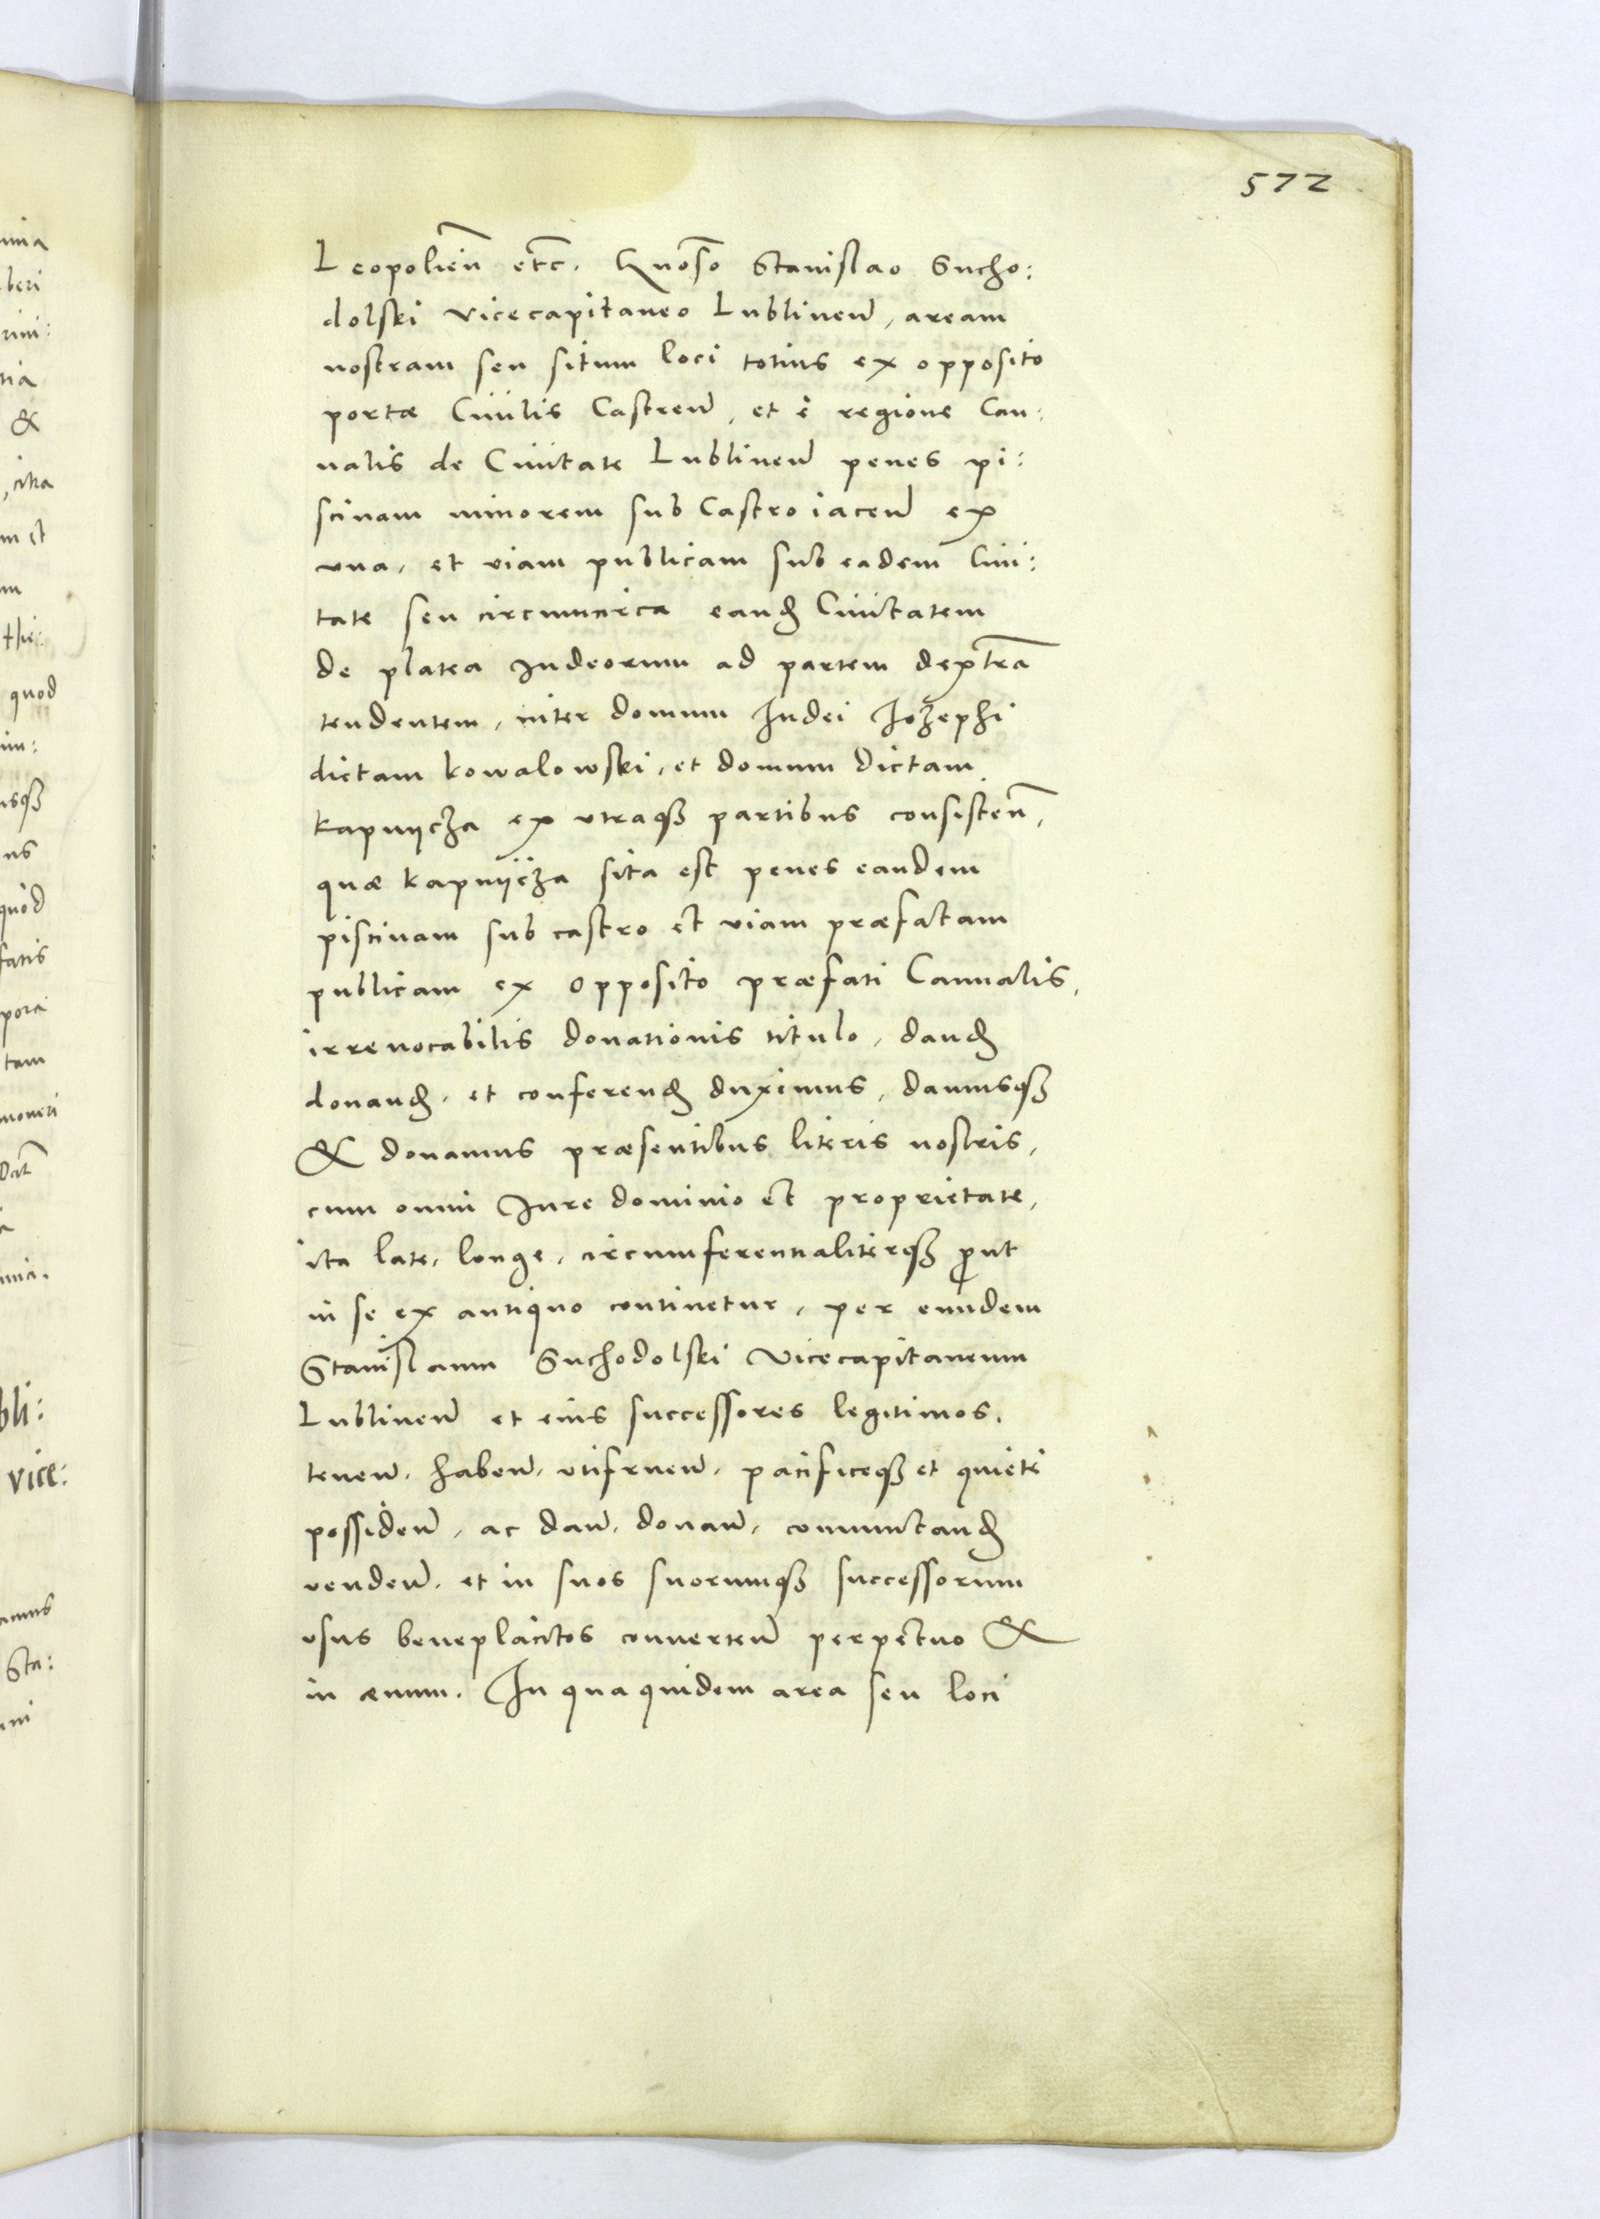 572
Leopolień etc. Gnōso Stanislao Sucho:
dolski vicecapitaneo Lublineń, aream
nostram seu situm loci totius ex opposito
portæ Ciuilis Castreń, et è regione Can:
nalis de Ciuitate Lublineń penes pi:
scinam minorem sub Castro iaceń ex
vna, et viam publicam sub eadem Ciui:
tate seu circumcirca eand Ciuitatem
de platea Iudeorum ad partem dextrā
tendentem, inter domum Iudei Jozephi
dictam kowalowski, et domum dictam
kapnijcza ex vtraqȝ partibus consisteń,
quæ kapnijcza sita est penes eandem
piscinam sub castro et viam præfatam
publicam ex opposito præfati Cannalis,
irreuocabilis donationis titulo, dand
donand, et conferend duximus, damusqȝ
& donamus præsentibus literis nostris,
cum omni Iure dominio et proprietate,
ita late, longe, circumferentialiterqȝ ꝓut
in se ex antiquo continetur, per eundem
Stanislaum Suchodolski Vicecapitaneum
Lublineń et eius successores legitimos,
teneń, habeń, vtifrueń, pacificeqȝ et quiete
possideń, ac dań, donań, comutand
vendeń, et in suos suorumqȝ successorum
vsus beneplacitos conuerteń perpetuo &
in æuum. In qua quidem area seu loci